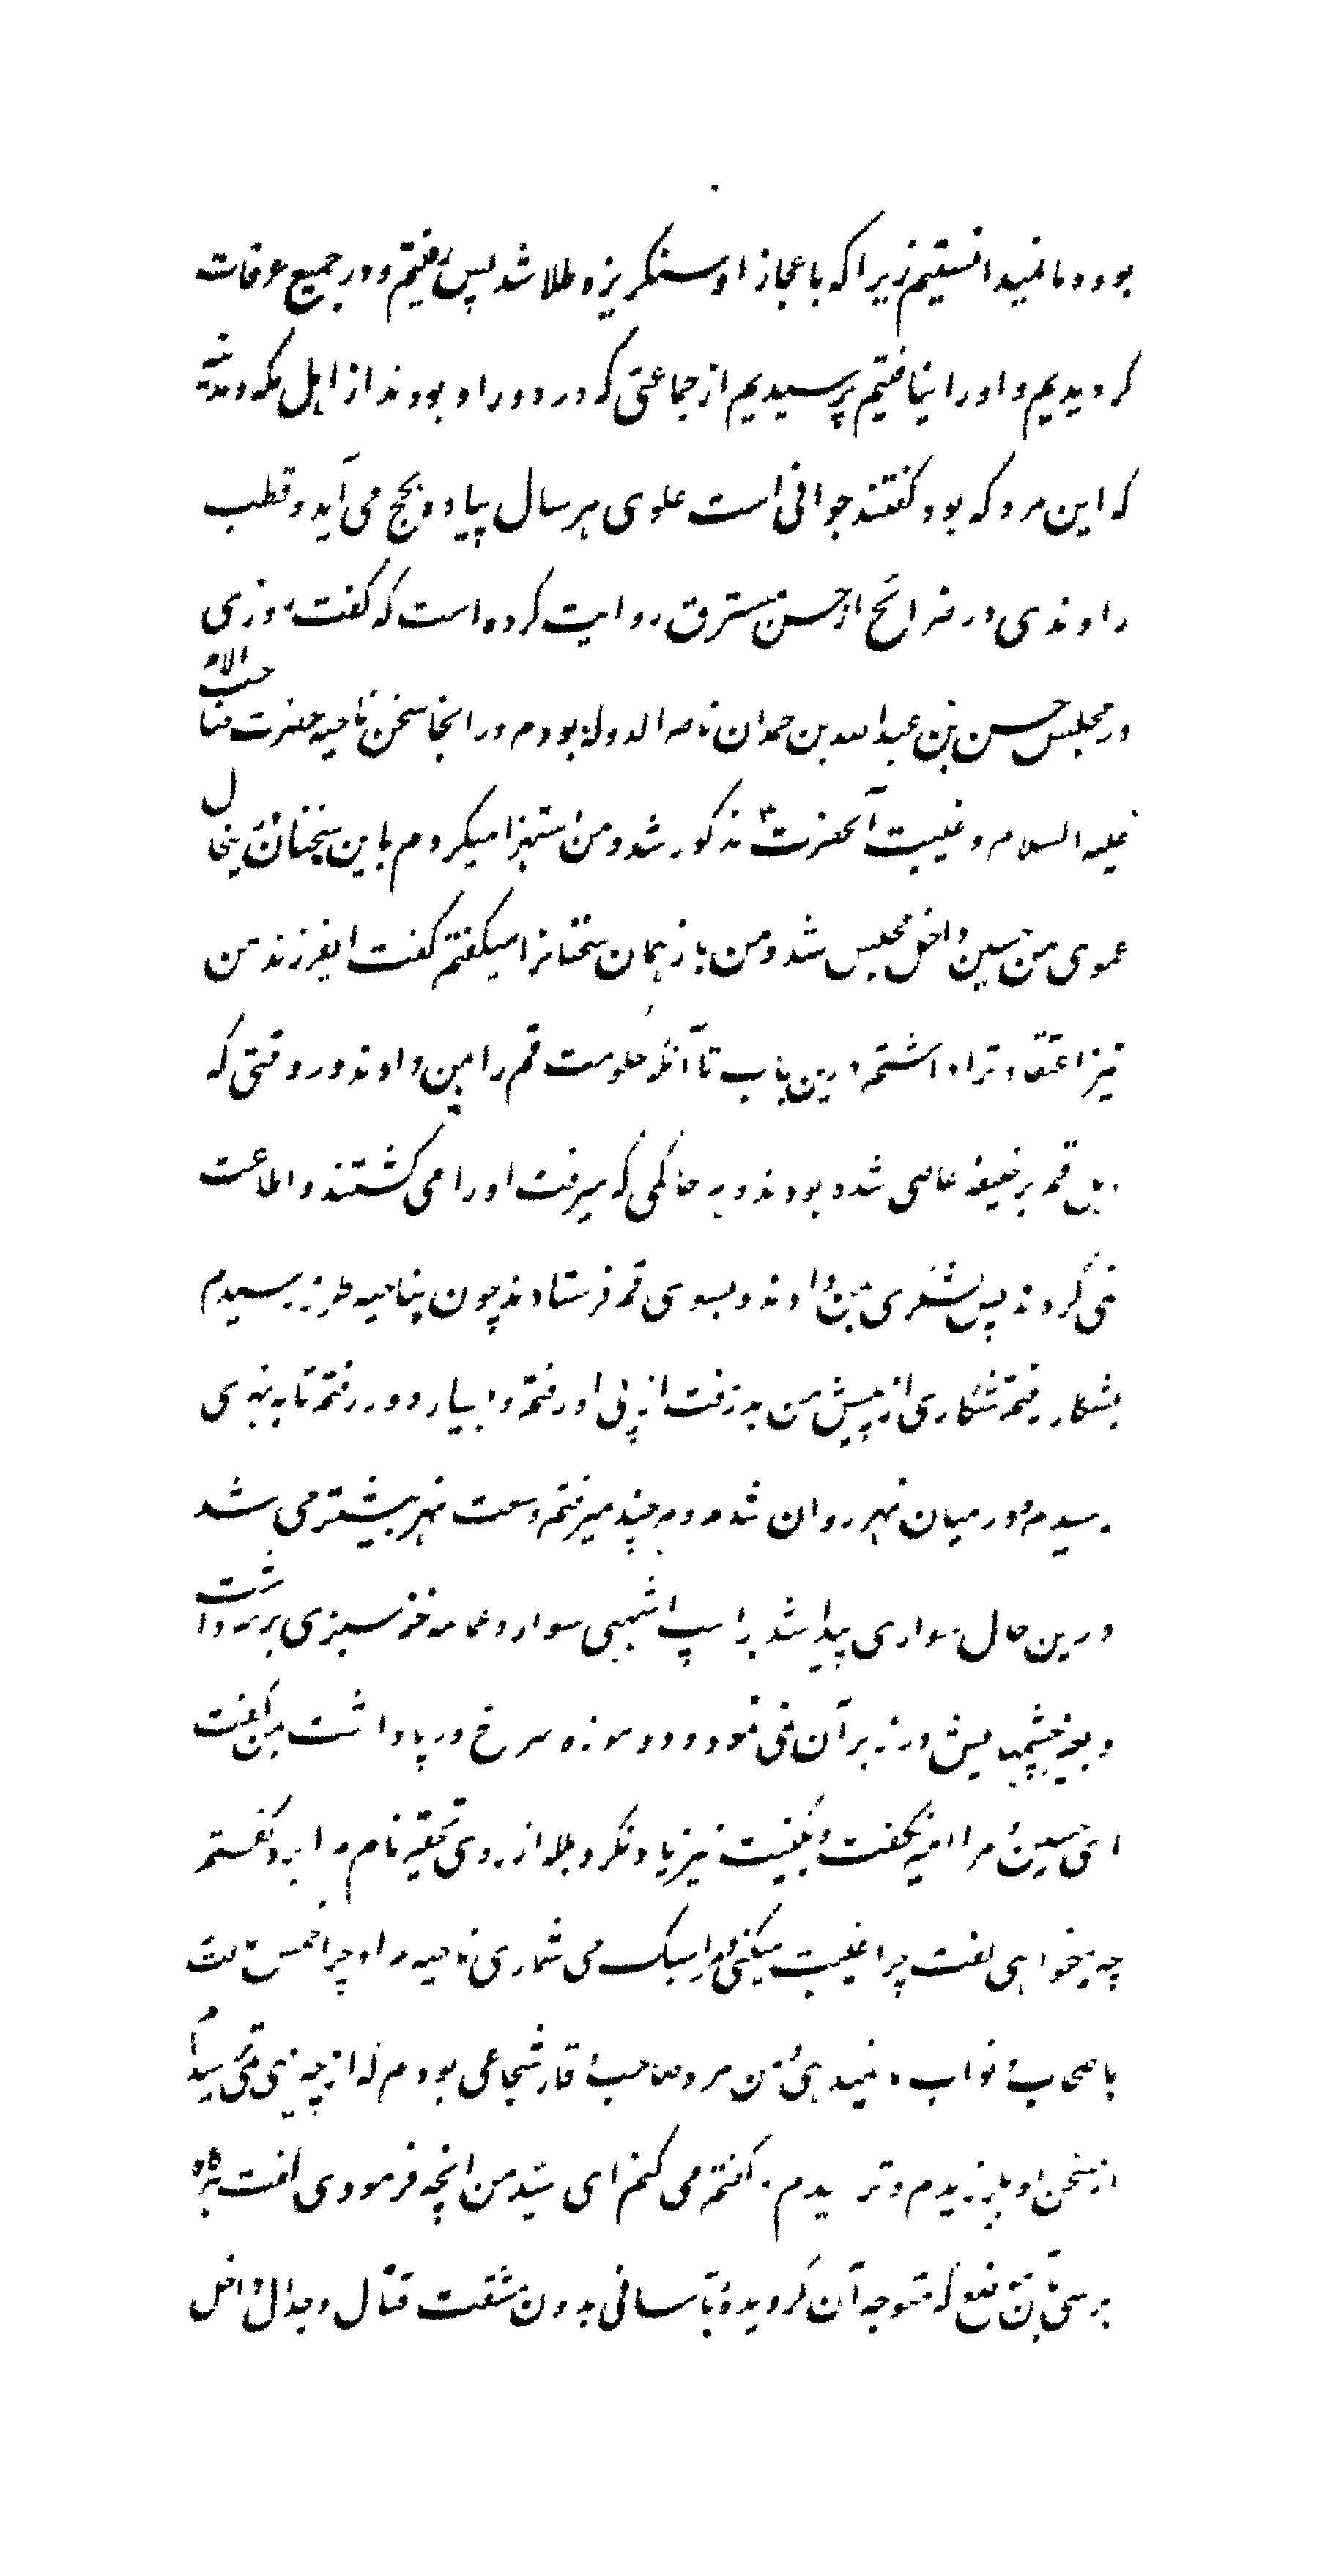 بوده ما نمیدانستیم زیرا که باعجاز او سنگریزه طلا شد پس رفتیم و در جمیع عرفات
گردیدیم و او را نیافتیم پرسیدیم از جماعتی که در دور او بودند از اهل مکه و مدینه
که این مرد که بود گفتند جوانی است علوی هر سال پیاده بحج می آید و قطب
راوندی در خرائج از حسن مسترق روایت کرده است که گفت روزی
در مجلس حسن بن عبدالله بن حمدان ناصر الدوله بودم در انجا سخن ناحیه حضرت صاحب الامر
علیه السلام و غیبت آنحضرت ع مذکور شد و من استهزا میکردم باین سخنان درینحال
عموی من حسین داخل مجلس شد و من باز همان سخنانرا میگفتم گفت ایفرزند من
نیز اعتقاد ترا داشتم درین باب تا آنکه حکومت قم را بمن دادند در وقتی که
اهل قم بر خلیفه عاصی شده بودند و هر حاکمی که میرفت او را می کشتند و اطاعت
نمی کردند پس لشکری بمن دادند و بسوی قم فرستادند چون بناحیه طرز رسیدم
بشکار رفتم شکاری از پیش من بدر رفت از پی او رفتم و بسیار دور رفتم تا به نهری
رسیدم و در میان نهر روان شدم و هر چند میرفتم وسعت نهر بیشتر می شد
درین حال سواری پیدا شد بر اسپ اشهبی سوار و عمامه خز سبزی بر سر داشت
و بغیر چشمهایش در زیر آن نمی نمود و دو موزه سرخ در پا داشت بمن گفت
ای حسین و مرا امیر نگفت و بکنیت نیز یاد نکرد بلکه از روی تحقیر نام مرا برد گفتم
چه میخواهی گفت چرا غیبت میکنی و سبک می شماری ناحیه مرا و چرا خمس مالت
باصحاب و نواب من نمیدهی و من مرد صاحب وقار شجاعی بودم که از چیزی نمی ترسیدم
از سخن او بلرزیدم و ترسیدم و گفتم می کنم ای سید من انچه فرمودی گفت هرگاه
برسی بآن موضع که متوجه آن گردیدۀ و بآسانی بدون مشقت قتال و جدال داخل